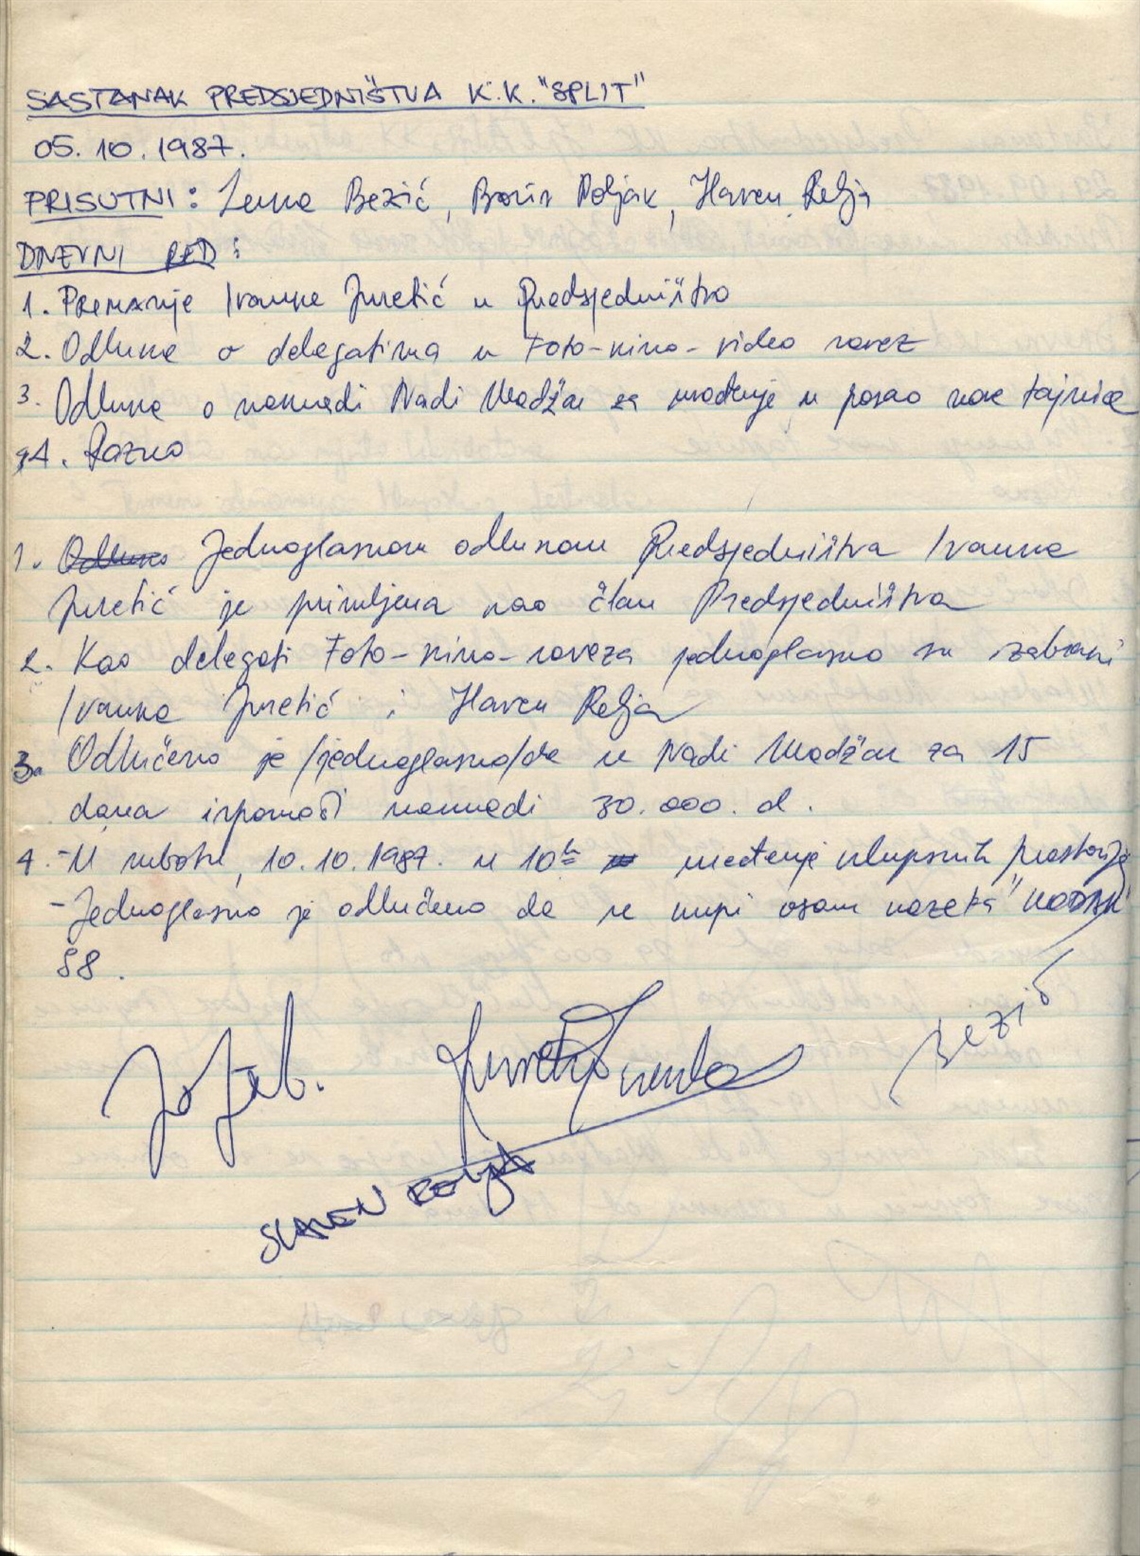 SASTANAK PREDSJEDNIŠTVA K.K. "SPLIT"
05.10.1987.
PRISUTNI: Bezić, Boris Poljak, Slaven Relja
DNEVNI RED:
1. Primanje Ivanke Juretić u Predsjedništvo
2. Odluka o delegatima u Foto-kino-video savez
3. Odluka o naknadi Nadi Mladžan za uvođenje u posao nove tajnice
4. Razno
1. Jednoglasnom odlukom Predsjedništva Ivanka
Juretić je primljena kao član Predsjedništva
2. Kao delegati Foto-kino-saveza jednoglasno su izabrani
Ivanka Juretić i Slaven Relja
3. Odlučeno je /jednoglasno/da se Nadi Mladžan za 15
dana isplati naknadi 30.000. d.
4. -U subotu, 10.10.1987. u 10h uređenje klupskih prostorija
-Jednoglasno je odlučeno da se kupi osam kazeta "KODAK"
S8.
Juretić Ivanka
Bezić
SLAVEN RELJA